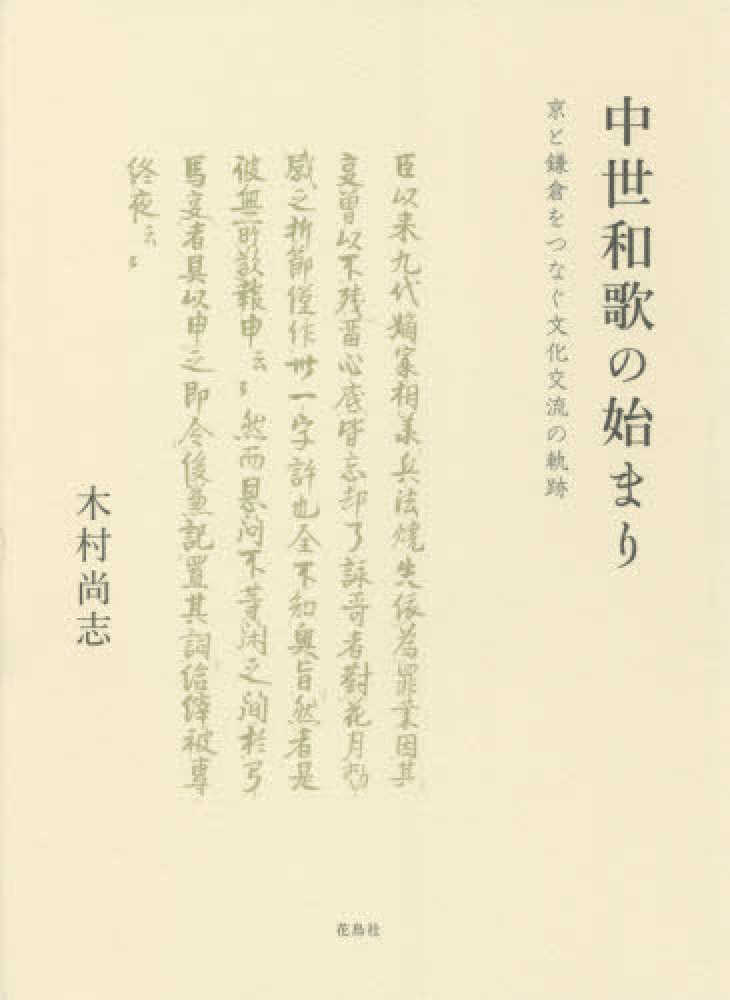 中世和歌の始まり
京と鎌倉をつなぐ文化交流の軌跡
臣以来九代嫡家相承兵法焼失依為罪業因其
事曽以不残留心底皆忘却了詠哥者対花月動
感之折節僅作卅一字許也全不知奥旨然者是
彼無所欲報申云々然而恩問不等閑之間於弓
馬事者具以申之即令俊兼記置其詞給縡被専
終夜云々
木村尚志
花鳥社